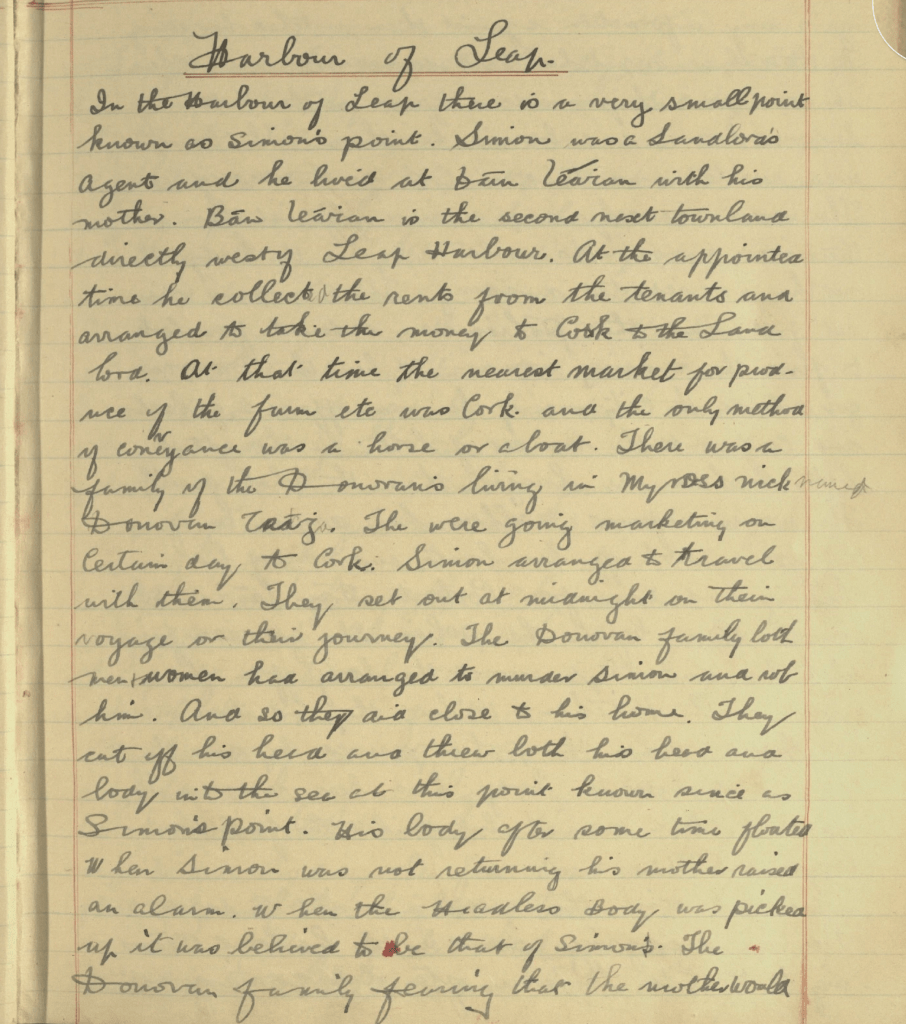 Harbour of Leap.
In the Harbour of Leap there is a very small point
known as Simon's point. Simon was a Landlord's
Agent and he lived at Bán Léárian with his
mother. Bán Léárian is the second next townland
directly west of Leap Harbour. At the appointed
time he collected the rents from the tenants and
arranged to take the money to Cork to the Land
lord. At that time the nearest market for prod-
uce of the farm etc was Cork. and the only method
of conveyance was a horse or a boat. There was a
family of the Donovan's living in Myross nick named
Donovan. The were going marketing on
Certain day to Cork. Simon arranged to travel
with them. They set out at midnight on their
voyage or their journey. The Donovan family both
men + women had arranged to murder Simon and rob
him. And so they did close to his home. They
cut off his head and threw both his head and
body into the sea at this point known since as
Simon's Point. His body after some time floated
When Simon was not returning his mother raised
an alarm. When the Headless Body was picked
up it was believed to be that of Simon's. The
Donovan family fearing that the mother would